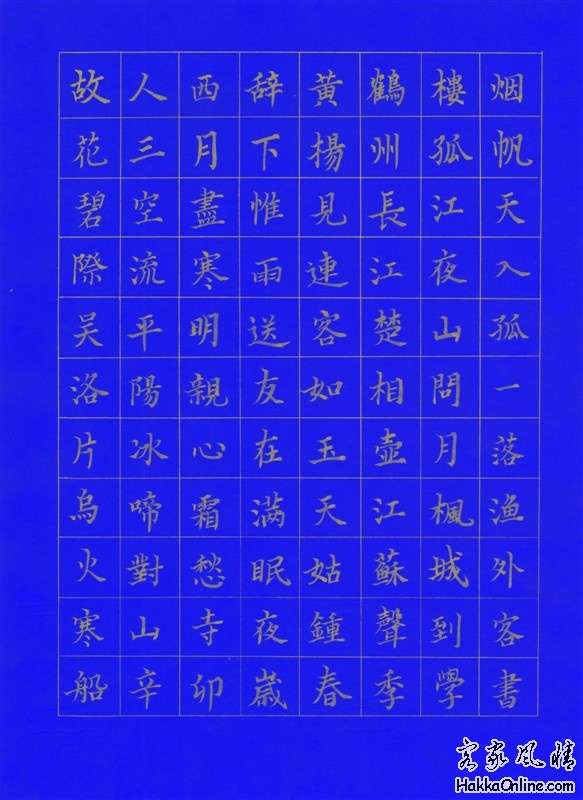 故人西辞黄鶴樓烟
花三月下揚州孤帆
碧空盡惟見長江天
際流寒雨連江夜入
吴平明送客楚山孤
洛陽親友如相問一
片冰心在玉壺月落
烏啼霜满天江楓渔
火對愁眠姑蘇城外
寒山寺夜鍾聲到客
船辛卯歲春季學書
客家風情
HakkaOnline.com